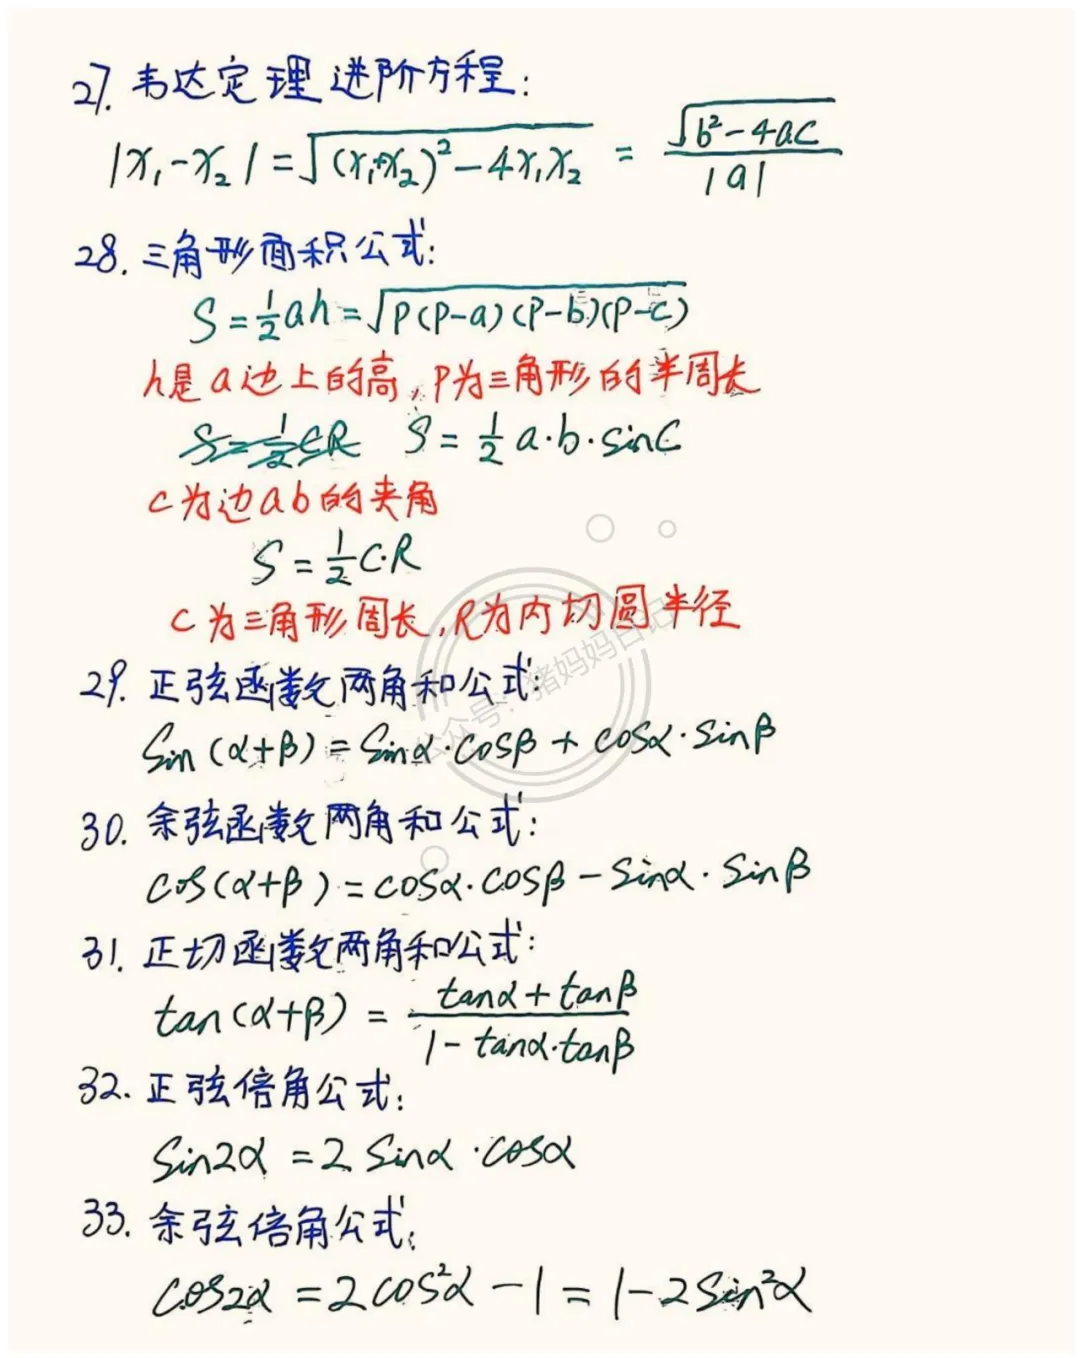 27. 韦达定理进阶方程:
|x₁-x₂|=√((x₁+x₂)²-4x₁x₂) = √(b²-4ac)/|a|
28. 三角形面积公式:
S=½ah=√(P(P-a)(P-b)(P-c))
h是a边上的高,P为三角形的半周长
S=½CR S=½a·b·sinC
C为边ab的夹角
S=½C·R
C为三角形周长,R为内切圆半径
29. 正弦函数两角和公式:
Sin(α+β)=Sinα·cosβ+cosα·sinβ
30. 余弦函数两角和公式:
cos(α+β)=cosα·cosβ-Sinα·Sinβ
31. 正切函数两角和公式:
tan(α+β)=(tanα+tanβ)/(1-tanα·tanβ)
32. 正弦倍角公式:
Sin2α=2Sinα·cosα
33. 余弦倍角公式:
cos2α=2cos²α-1=1-2Sin²α
公众号:猪妈妈日记